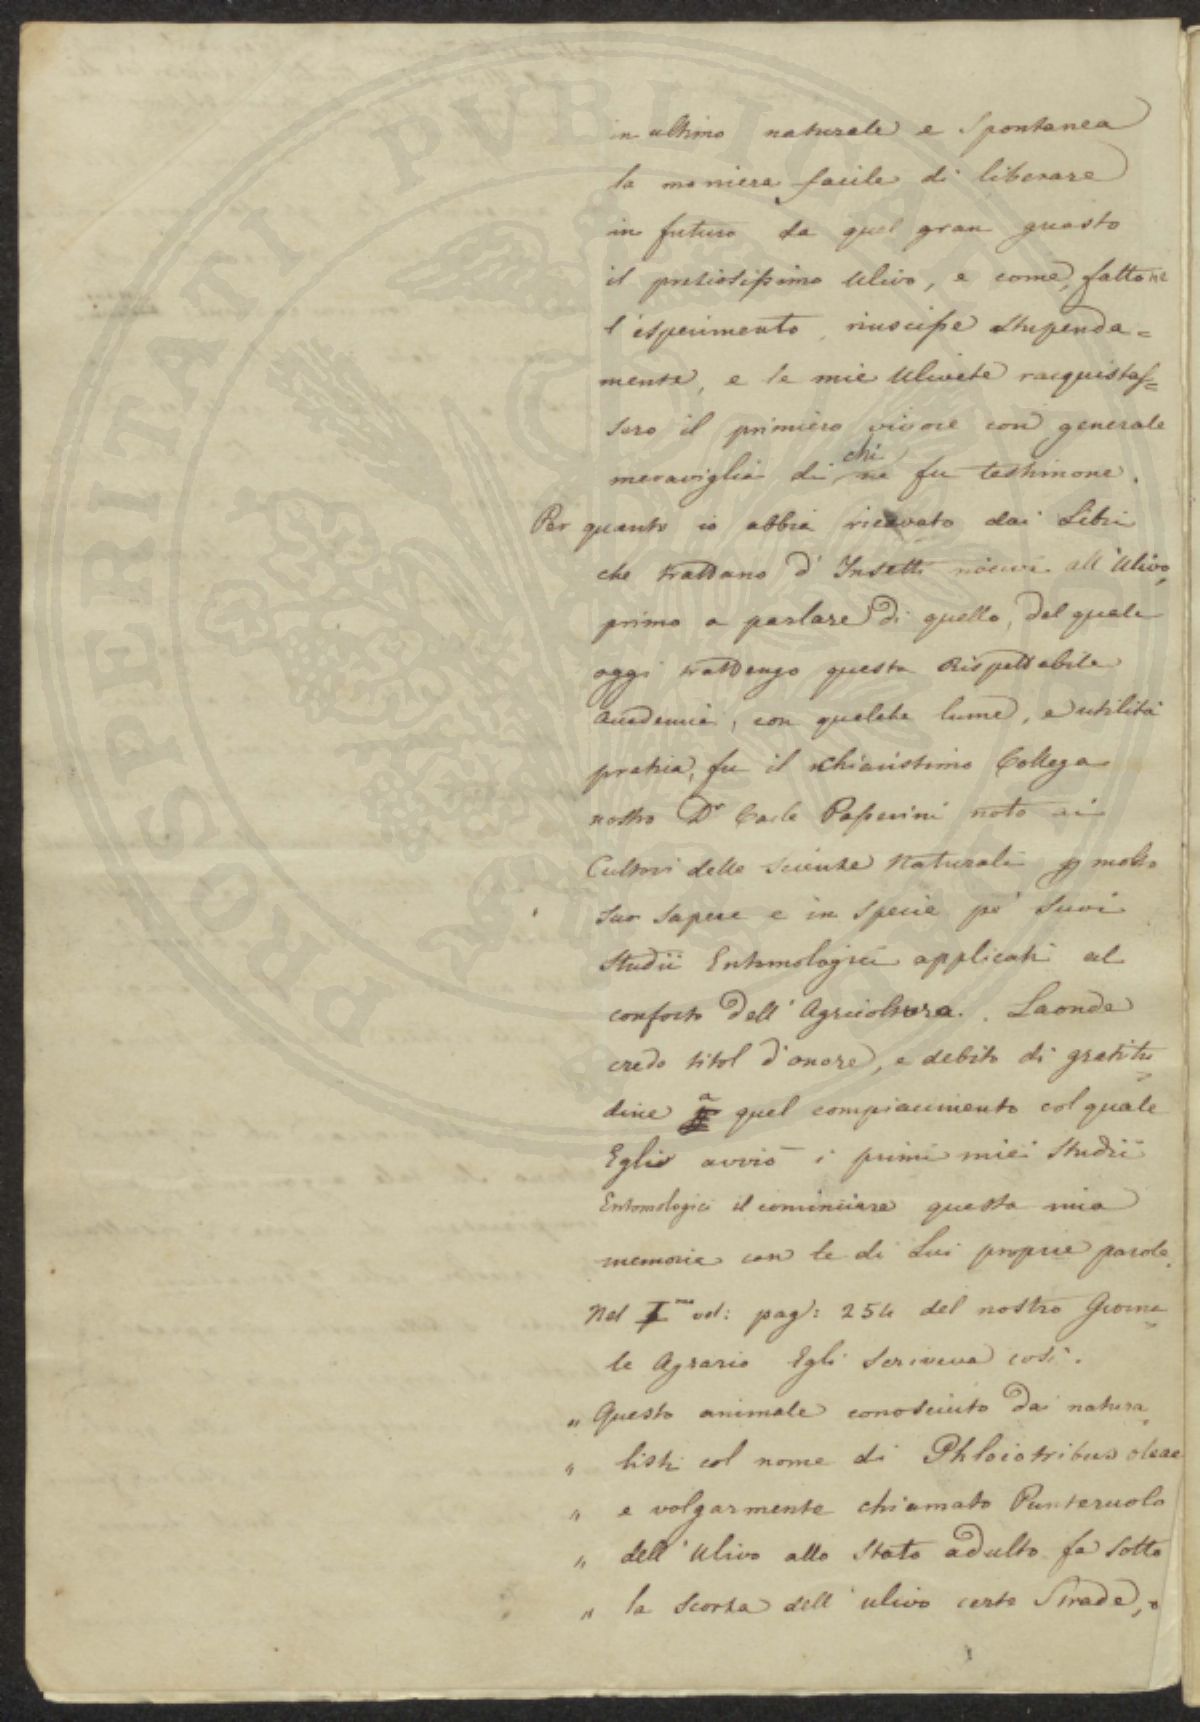 in ultimo naturale e spontanea
la maniera facile di liberare
in futuro da quel gran guasto
il preziosissimo Ulivo, e come, fattone
l'esperimento, riuscisse stupenda=
mente, e le mie Ulivete racquistas=
sero il primiero vigore con generale
meraviglia di chi ne fu testimone.
Per quanto io abbia ricavato dai Libri
che trattano d'Insetti nocivi all'Ulivo,
primo a parlare di quello, del quale
oggi trattengo questa Rispettabile
Accademia, con qualche lume, e utilità
pratica, fu il Chiarissimo Collega
nostro Dr Carlo Passerini noto ai
Cultori delle Scienze Naturali p molto
suo sapere e in specie pe' suoi
Studii Entomologici applicati al
conforto dell'Agricoltura. Laonde
credo titol d'onore, e debito di gratitu
dine a quel compiacimento col quale
Egli avviò i primi miei Studii
Entomologici il cominciare questa mia
memoria con le di Lui proprie parole.
Nel Imo vol: pag: 254 del nostro Giorna
le Agrario Egli scriveva così.
" Questo animale conosciuto dai natura
" listi col nome di Phloiotribus oleae
" e volgarmente chiamato Punteruolo
" dell'Ulivo allo stato adulto fa sotto
" la scorza dell'ulivo certe strade, o
PROSPERITATI PVBLICAE